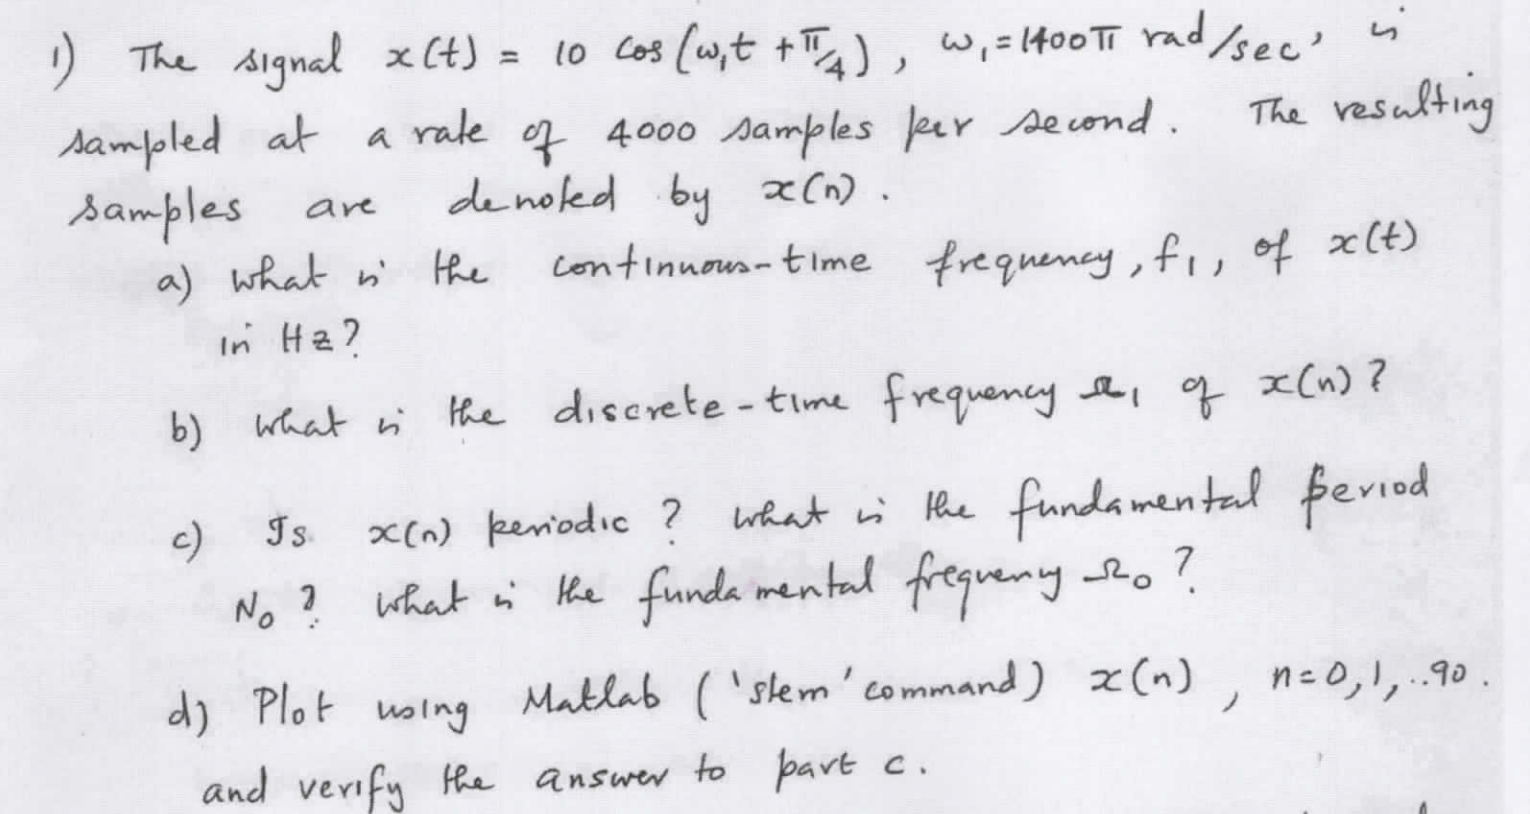 1) The signal x(t) = 10 cos(ω₁t + π/4), ω₁ = 1400π rad/sec, is
sampled at a rate of 4000 samples per second. The resulting
samples are denoted by x(n).
a) What is the continuous-time frequency, f₁, of x(t)
in Hz?
b) What is the discrete-time frequency Ω₁ of x(n)?
c) Is x(n) periodic? What is the fundamental period
N₀? What is the fundamental frequency Ω₀?
d) Plot using Matlab ('stem' command) x(n), n=0,1,..90.
and verify the answer to part c.